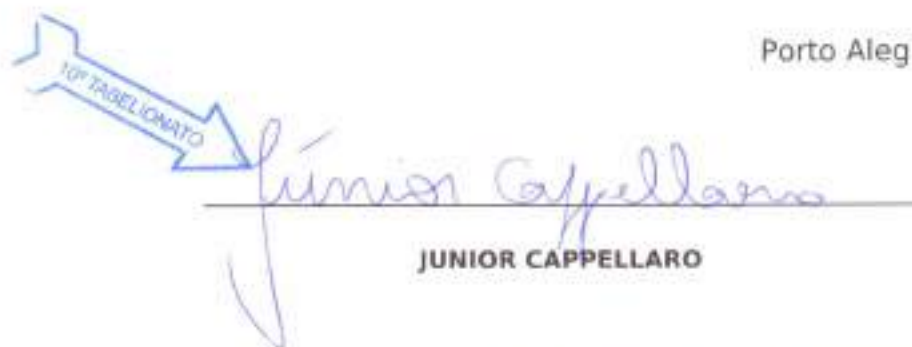 Porto Aleg
10º TABELIONATO
Júnior Cappellaro
JUNIOR CAPPELLARO